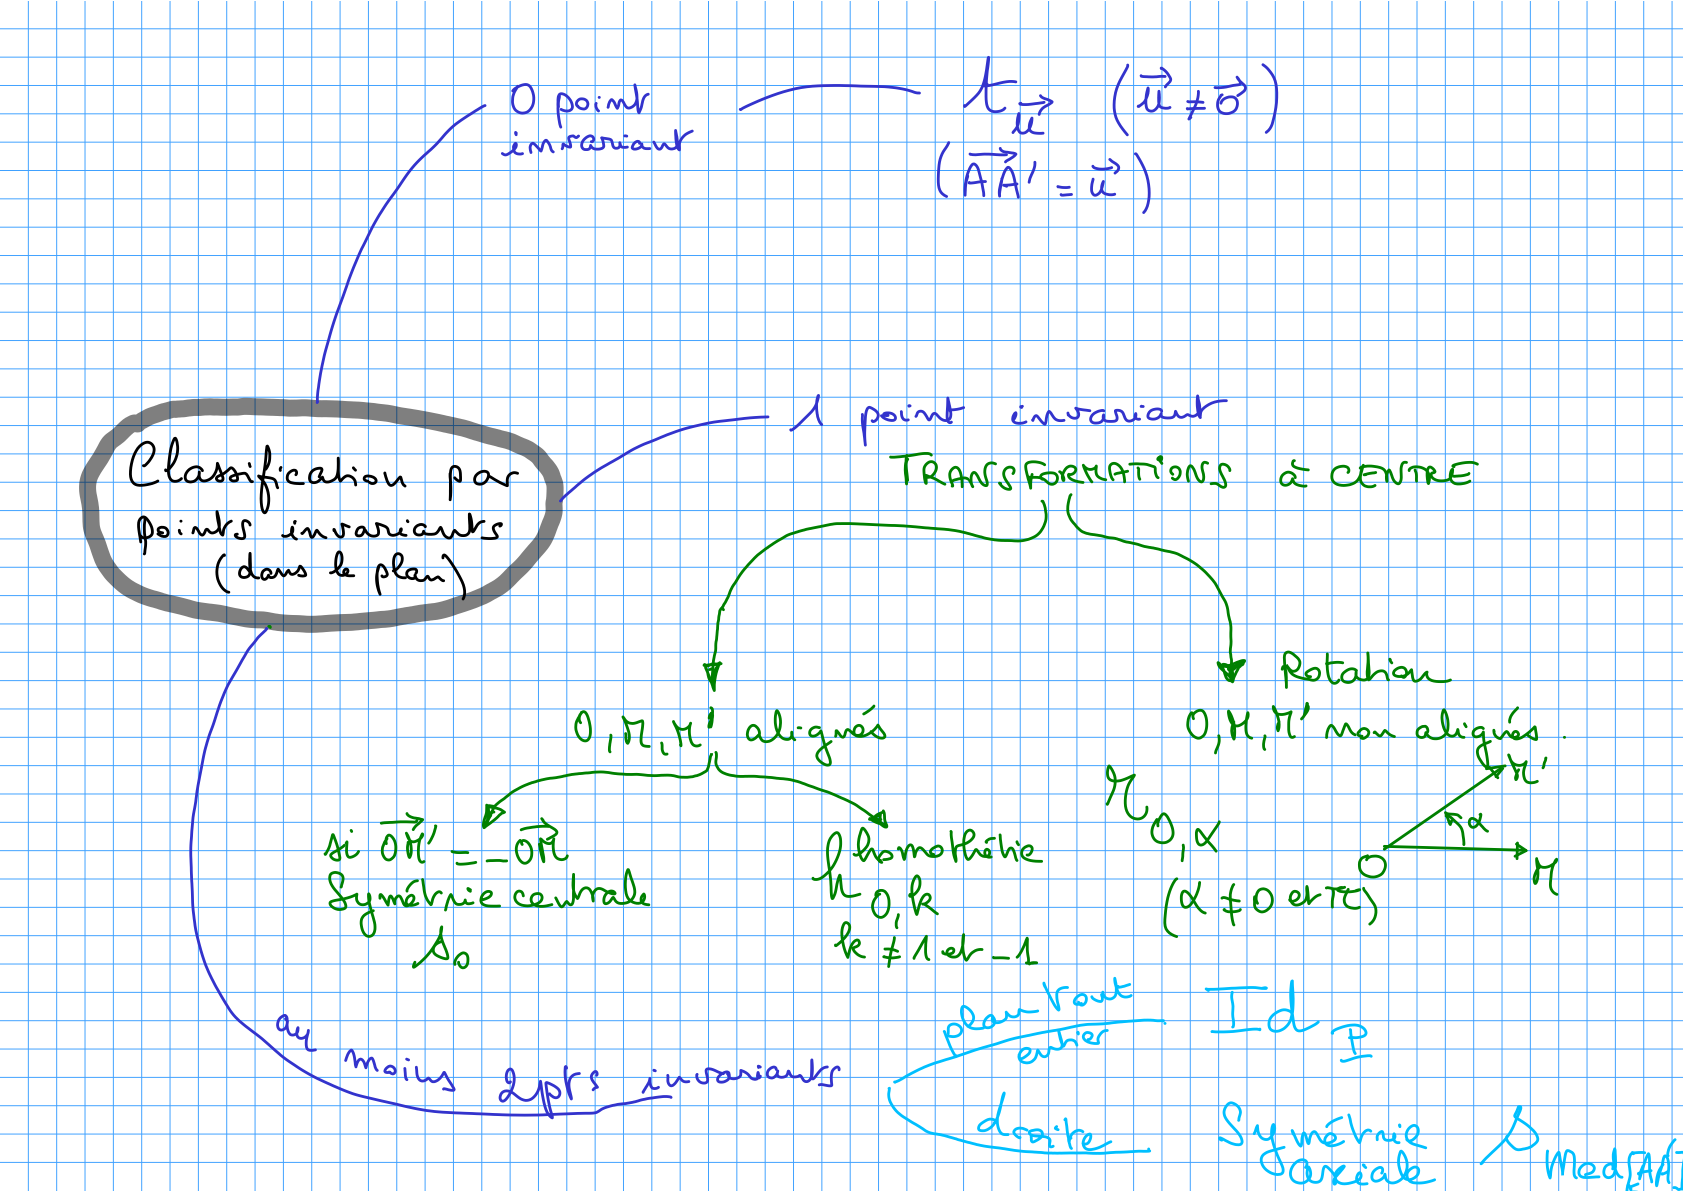 0 point
invariant
t_u⃗ (u⃗ ≠ o⃗)
(AA'⃗ = u⃗)
Classification par
points invariants
(dans le plan)
1 point invariant
TRANSFORMATIONS à CENTRE
O,M,M' alignés
si OM'⃗ = -OM⃗
Symétrie centrale
s_O
homothétie
h_O,k
k ≠ 1 et -1
Rotation
O,M,M' non alignés.
r_O,α
(α ≠ 0 et π)
M'
α
O
M
au moins 2pts invariants
plan tout
entier
Id_P
droite
Symétrie
axiale
S_Med[AA']